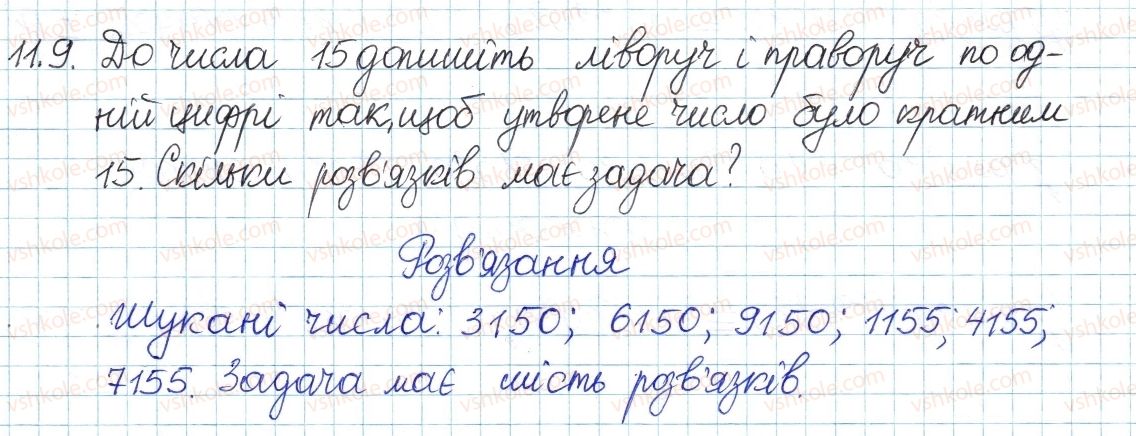 11.9. До числа 15 допишіть ліворуч і праворуч по од-
ній цифрі так, щоб утворене число було кратним
15. Скільки розв'язків має задача?
Розв'язання
Шукані числа: 3150; 6150; 9150; 1155; 4155;
7155. Задача має шість розв'язків.